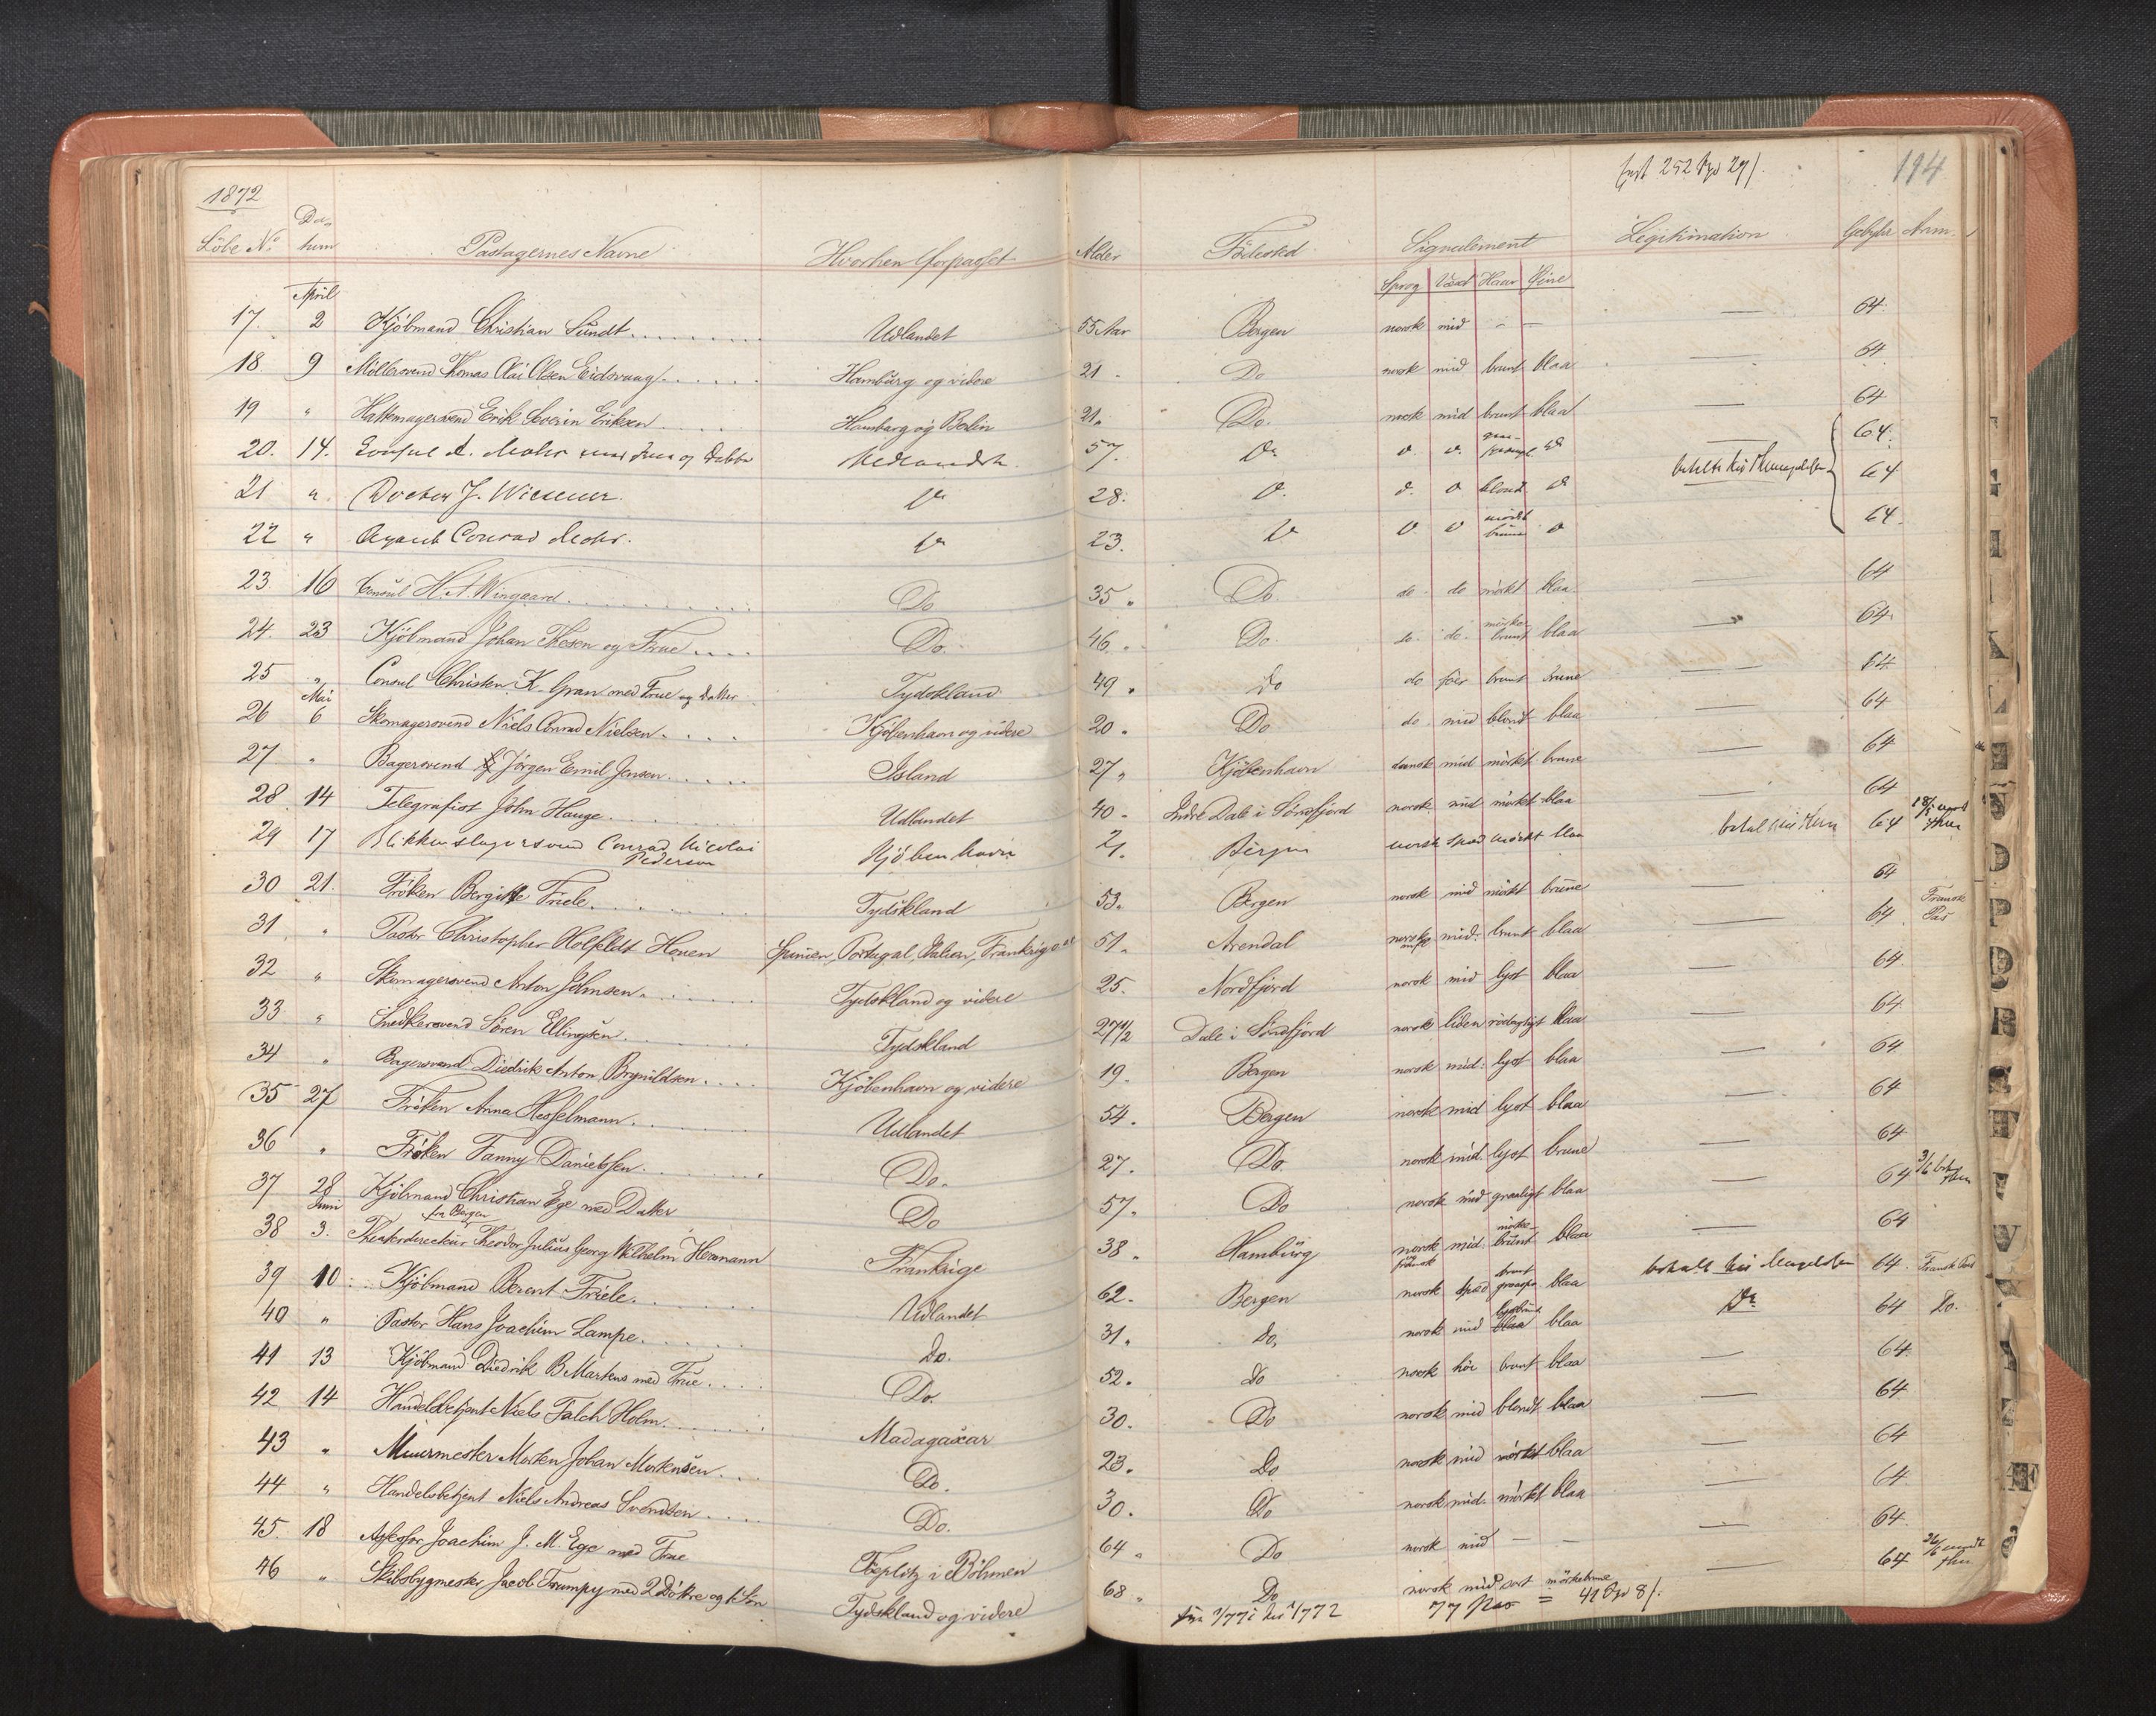 194
1872
Löbe No. Datum Pastagernes Navne Hvorhen forpasset Alder Födested Signalement Legitimation Gebyhr Anm.
Sprog Væxt Haar Öine
April
17. 2 Kjöbmand Christian Sundt Udlandet 55 Aar Bergen norsk mid – – — 64.
18. 9 Möllersvend Thomas Olai Olsen Eidsvaag Hamburg og videre 21 Do norsk mid brunt blaa — 64
19 " Hattemagersvend Erik Severin Eriksen Hamburg og Berlin 21. Do. norsk mid brunt blaa — 64
20. 14. Consul A. Mohr med Frue og Datter Udlandet 57. Do — 64.
21 " Doctor J. Wiesener. Do 28. blond 64
22 " Agent Conrad Mohr. Do 23. mörkt brune 64.
23. 16 Consul H. A. Wingaard Do 35 " Do. do do mörkt blaa — 64
24. 23 Kjöbmand Johan Thesen og Frue Do. 46. Do. do. do. mörke brunt blaa — 64.
25 " Consul Christen K. Gran med Frue og Datter Tydskland 49 " Do do före brunt brune — 64
Mai
26 6 Skomagersvend Niels Conrad Nielsen Kjöbenhavn og videre 20 " Do do mid blondt blaa — 64
27 " Bagersvend Jörgen Emil Jensen Island 27 " Kjöbenhavn dansk mid mörkt brune — 64
28 14 Telegrafist John Hauge Udlandet 40 " Indre Dale i Söndfjord norsk mid mörkt blaa — 64
29 17 Blikkenslagersvend Conrad Nicolai Pedersen Kjöbenhavn 21. Bergen norsk spæd mörkt blaa 64
30 21. Fröken Bergitte Friele Tydskland 53. Bergen norsk mid mörkt brune — 64
31 " Pastor Christopher Holfeldt Houen Spanien, Portugal, Italien, Frankrig 51. Arendal norsk mid: brunt blaa — 64 Fransk Pas
32 " Skomagersvend Anton Johnsen Tydskland og videre 25. Nordfjord norsk mid lyst blaa — 64
33 " Snedkersvend Sören Ellingsen Tydskland 27 1/2 Dale i Söndfjord norsk liden rödagtigt blaa — 64
34 " Bagersvend Diedrik Anton Brynildsen Kjöbenhavn og videre 19. Bergen norsk mid: lyst blaa — 64
35 27 Fröken Anna Hesselmann Udlandet 54. Bergen norsk mid lyst blaa — 64
36 " Fröken Fanny Danielssen Do. 27. Do. norsk mid. lyst brune — 64
37 28 Kjöbmand Christian Ege med Datter Do 57. Do norsk mid graaligt blaa — 64
Juni fra Bergen
38 3. Theaterdirecteur Theodor Julius Georg Wilhelm Hermann Frankrige 38 " Hamburg norsk mid. mörke brunt blaa — 64
39 10 Kjöbmand Berent Friele Udlandet 62 " Bergen norsk spæd brunt blaa 64. Fransk Pas
40 " Pastor Hans Joachim Lampe Do. 31. Do. norsk mid lysbrun blaa Do 64 Do.
41 13 Kjöbmand Diedrik B Martens med Frue Do. 52. Do norsk höi brunt blaa — 64
42 14 Handelsbetjent Niels Falch Holm Madagascar 30. Do norsk mid blondt blaa — 64
43 " Muurmester Morten Johan Mortensen Do. 23. Do norsk mid mörkt blaa — 64
44 " Handelsbetjent Niels Andreas Svendsen Do. 30. Do norsk mid. mörkt blaa — 64
45. 18 Joachim J. M. Ege med Frue Teplitz i Böhmen 64 " Do norsk mid – – — 64.
46 " Skibsbygmester Jacob Trumpy med 2 Döttre og 1 Sön Tydskland og videre 68 " Do norsk mid sort mörkebrune — 64
77 Pas =